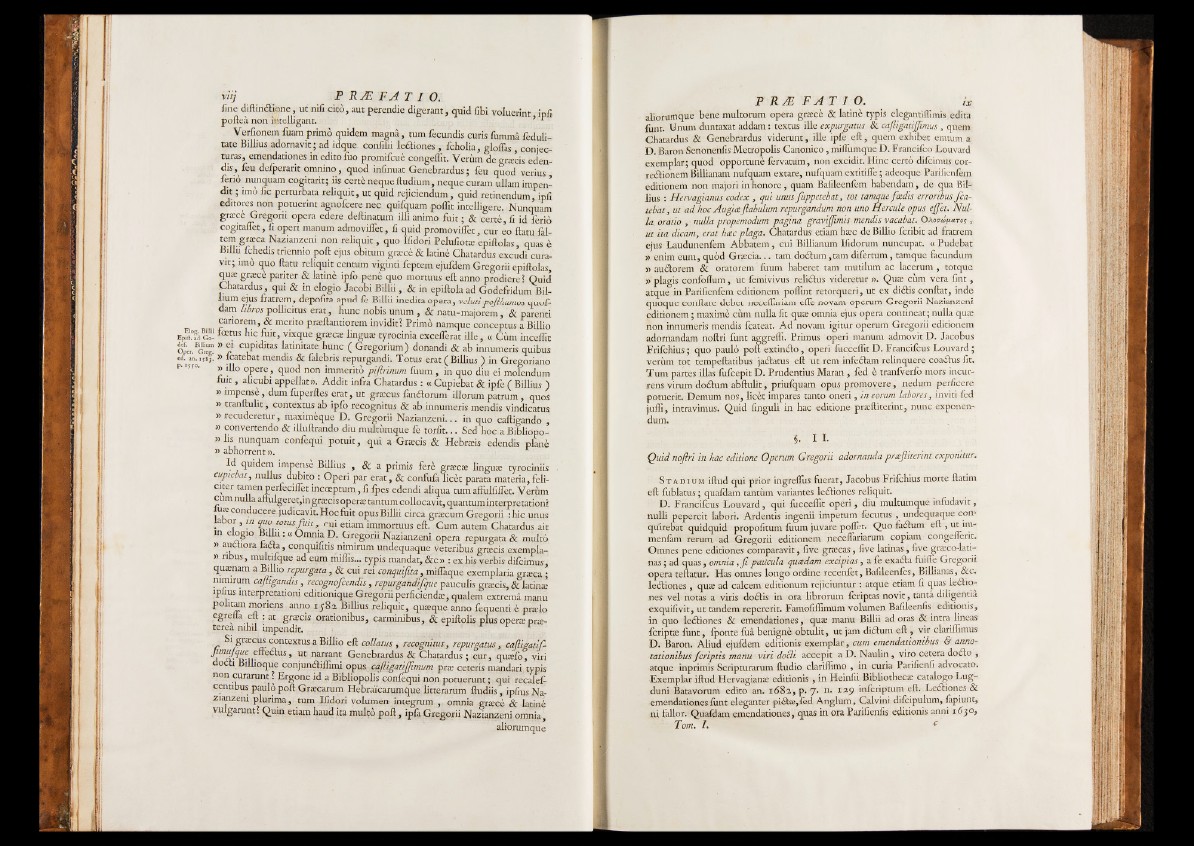 viij PRÆFATIO.
ſine diſtinctione, ut niſi citò, aut perendie digerant, quid ſibi voluerint, ipſi
poſteà non intelligant.
Verſionem ſuam primò quidem magnâ, tum ſecundis curis ſummâ ſeduli-
tate Billius adornavit; ad idque conſilii lectiones, ſcholia, gloſſas, conjec-
turas, emendationes in edito ſuo promiſcuè congeſſit. Verùm de græcis eden-
dis, ſeu deſperarit omnino, quod inſinuat Genebrardus; ſeu quod verius,
ſeriò nunquam cogitarit; iis certè neque ſtudium, neque curam ullam impen-
dit; imò ſic perturbata reliquit, ut quid rejiciendum, quid retinendum, ipſi
editores non potuerint agnoſcere nec quiſquam poſſit intelligere. Nunquam
græcè Gregorii opera edere deſtinatum illi animo fuit; & certè, ſi id ſeriò
cogitaſſet, ſi opert manum admoviſſet, ſi quid promoviſſet, cur eo ſtatu ſal-
tem græca Nazianzeni non reliquit, quo Iſidori Peluſiotæ epiſtolas, quas è
Billii ſchedis triennio poſt ejus obitum græcè & latinè Chatardus excudi cura-
vit; imò quo ſtatu reliquit centum viginti ſeptem ejuſdem Gregorii epiſtolas,
quæ græcè pariter & latinè ipſo penè quo mortuus eſt anno prodiere? Quid
Chatardus, qui & in elogio Jacobi Billii, & in epiſtola ad Godefridum Bil-
lium ejus fratrem, depoſita apud ſe Billii inedita opera, veluti poſthumos quoſ-
dam libros pollicitus erat, hunc nobis unum, & natu-majorem, & parenti
cariorem, & merito præſtantiorem invidit? Primò namque conceptus à Billio
fœtus hic fuit, vixque græcæ linguæ tyrocinia exceſſerat ille, « Cùm inceſſit
» ei cupiditas latinitate hunc ( Gregorium ) donandi & ab innumeris quibus
» ſcatebat mendis & ſalebris repurgandi. Totus erat ( Billius ) in Gregoriano
» illo opere, quod non immeritò piſtrinum ſuum, in quo diu ei molendum
fuit, alicubi appellat ». Addit infra Chatardus : « Cupiebat & ipſe ( Billius )
» impensè, dum ſuperſtes erat, ut græcus ſanctorum illorum patrum, quos
» tranſtulit, contextus ab ipſo recognitus & ab innumeris mendis vindicatus
» recuderetur, maximèque D. Gregorii Nazianzeni... in quo caſtigando,
» convertendo & illuſtrando diu multùmque ſe torſit... Sed hoc a Bibliopo-
» lis nunquam conſequi potuit, qui a Græcis & Hebræis edendis planè
» abhorrent ».
Id quidem impensè Billius, & a primis ferè græcæ linguæ tyrociniis
cupiebat, nullus dubito : Operi par erat, & confuſa licèt parata materia, feli-
citer tamen perfeciſſet incœptum, ſi ſpes edendi aliqua tum affulſiſſet. Verùm
cùm nulla affulgeret, in græcis operæ tantum collocavit, quantum interpretationi
ſuæ conducere judicavit. Hoc fuit opus Billii circa græcum Gregorii : hic unus
labor, in quo totus fuit, cui etiam immortuus eſt. Cum autem Chatardus ait
in elogio Billii : « Omnia D. Gregorii Nazianzeni opera repurgata & multò
» auctiora facta, conquiſitis nimirum undequaque veteribus græcis exempla-
» ribus, multiſque ad eum miſſis... typis mandat, &c » : ex his verbis diſcimus,
quænam a Billio repurgata, & cui rei conquiſita, miſſaque exemplaria græca;
nimirum caſtigandis, recognoſcendis, repurgandiſque pauculis græcis, & latinæ
ipſius interpretationi editionique Gregorii perficiendæ, qualem extremâ manu
politam moriens anno 1582 Billius reliquit, quæque anno ſequenti è prælo
egreſſa eſt : at græcis orationibus, carminibus, & epiſtolis plus operæ præ-
tereà nihil impendit.
Si græcus contextus a Billio eſt collatus, recognitus, repurgatus, caſtigatiſ-
ſimuſque effectus, ut narrant Genebrardus & Chatardus; cur, quæſo, viri
docti Billioque conjunctiſſimi opus caſtigatiſſimum præ ceteris mandari typis
non curarunt? Ergone id a Bibliopolis conſequi non potuerunt; qui recaleſ-
centibus paulò poſt Græcarum Hebraicarumque litterarum ſtudiis, ipſius Na-
zianzeni plurima, tum Iſidori volumen integrum, omnia græcè & latinè
vulgarunt? Quin etiam haud ita multò poſt, ipſa Gregorii Nazianzeni omnia,
aliorumque
Elog. Billii
Epiſt. ad Go-
def. Billium
Oper. Greg.
ed. an. 1583.
PRÆFATIO. ix
aliorumque bene multorum opera græcè & latinè typis elegantiſſimis edita
ſunt. Unum duntaxat addam : textus ille expurgatus & caſtigatiſſimus, quem
Chatardus & Genebrardus viderunt, ille ipſe eſt, quem exhibet emtum a
D. Baron Senonenſis Metropolis Canonico, miſſumque D. Franciſco Louvard
exemplar; quod opportunè ſervatum, non excidit. Hinc certò diſcimus cor-
rectionem Billianam nuſquam extare, nuſquam extitiſſe; adeoque Pariſienſem
editionem non majori in honore, quam Baſileenſem habendam, de qua Bil-
lius : Hervagianus codex, qui unus ſuppetebat, tot tamque fœdis erroribus ſca-
tebat, ut ad hoc Augiæ ſtabulum repurgandum non uno Hercule opus eſſet. Nul-
la oratio, nulla propemodum pagina graviſſimis mendis vacabat. Ὁλοσώματος,
ut ita dicam, erat hæc plaga. Chatardus etiam hæc de Billio ſcribit ad fratrem
ejus Laudunenſem Abbatem, cui Billianum Iſidorum nuncupat. « Pudebat
» enim eum, quòd Græcia... tam doctum, tam diſertum, tamque facundum
» auctorem & oratorem ſuum haberet tam mutilum ac lacerum, totque
» plagis confoſſum, ut ſemivivus relictus videretur ». Quæ cùm vera ſint,
atque in Pariſienſem editionem poſſint retorqueri, ut ex dictis conſtat, inde
quoque conſtare debet neceſſariam eſſe novam operum Gregorii Nazianzeni
editionem; maximè cùm nulla ſit quæ omnia ejus opera contineat; nulla quæ
non innumeris mendis ſcateat. Ad novam igitur operum Gregorii editionem
adornandam noſtri ſunt aggreſſi. Primus operi manum admovit D. Jacobus
Friſchius; quo paulò poſt extincto, operi ſucceſſit D. Franciſcus Louvard;
verùm tot tempeſtatibus jactatus eſt ut rem infectam relinquere coactus ſit.
Tum partes illas ſuſcepit D. Prudentius Maran, ſed è tranſverſo mors incur-
rens virum doctum abſtulit, priuſquam opus promovere, nedum perficere
potuerit. Demum nos, licèt impares tanto oneri, in eorum labores, inviti ſed
juſſi, intravimus. Quid ſinguli in hac editione præſtiterint, nunc exponen-
dum.
§. II.
Quid noſtri in hac editione Operum Gregorii adornanda præſtiterint exponitur.
STADIUM iſtud qui prior ingreſſus fuerat, Jacobus Friſchius morte ſtatim
eſt ſublatus; quaſdam tantùm variantes lectiones reliquit.
D. Franciſcus Louvard, qui ſucceſſit operi, diu multumque inſudavit,
nulli pepercit labori. Ardentis ingenii impetum ſecutus, undequaque con-
quirebat quidquid propoſitum ſuum juvare poſſet. Quo factum eſt, ut im-
menſam rerum ad Gregorii editionem neceſſariarum copiam congeſſerit.
Omnes pene editiones comparavit, ſive græcas, ſive latinas, ſive græco-lati-
nas; ad quas, omnia, ſi paucula quædam excipias, a ſe exacta fuiſſe Gregorii
opera teſtatur. Has omnes longo ordine recenſet, Baſileenſes, Billianas, &c.
lectiones, quæ ad calcem editionum rejiciuntur : atque etiam ſi quas lectio-
nes vel notas a viris doctis in ora librorum ſcriptas novit, tantâ diligentiâ
exquiſivit, ut tandem repererit. Famoſiſſimum volumen Baſileenſis editionis,
in quo lectiones & emendationes, quæ manu Billii ad oras & intra lineas
ſcriptæ ſunt, ſponte ſuâ benignè obtulit, ut jam dictum eſt, vir clariſſimus
D. Baron. Aliud ejuſdem editionis exemplar, cum emendationibus & anno-
tationibus ſcriptis manu viri docti accepit a D. Naulin, viro cetera docto,
atque inprimis Scripturarum ſtudio clariſſimo, in curia Pariſienſi advocato.
Exemplar iſtud Hervagianæ editionis, in Heinſii Bibliothecæ catalogo Lug-
duni Batavorum edito an. 1682, p. 7. n. 129 inſcriptum eſt. Lectiones &
emendationes ſunt eleganter pictæ, ſed Anglum, Calvini diſcipulum, ſapiunt,
ni fallor. Quaſdam emendationes, quas in ora Pariſienſis editionis anni 1630,
Tom. I. c